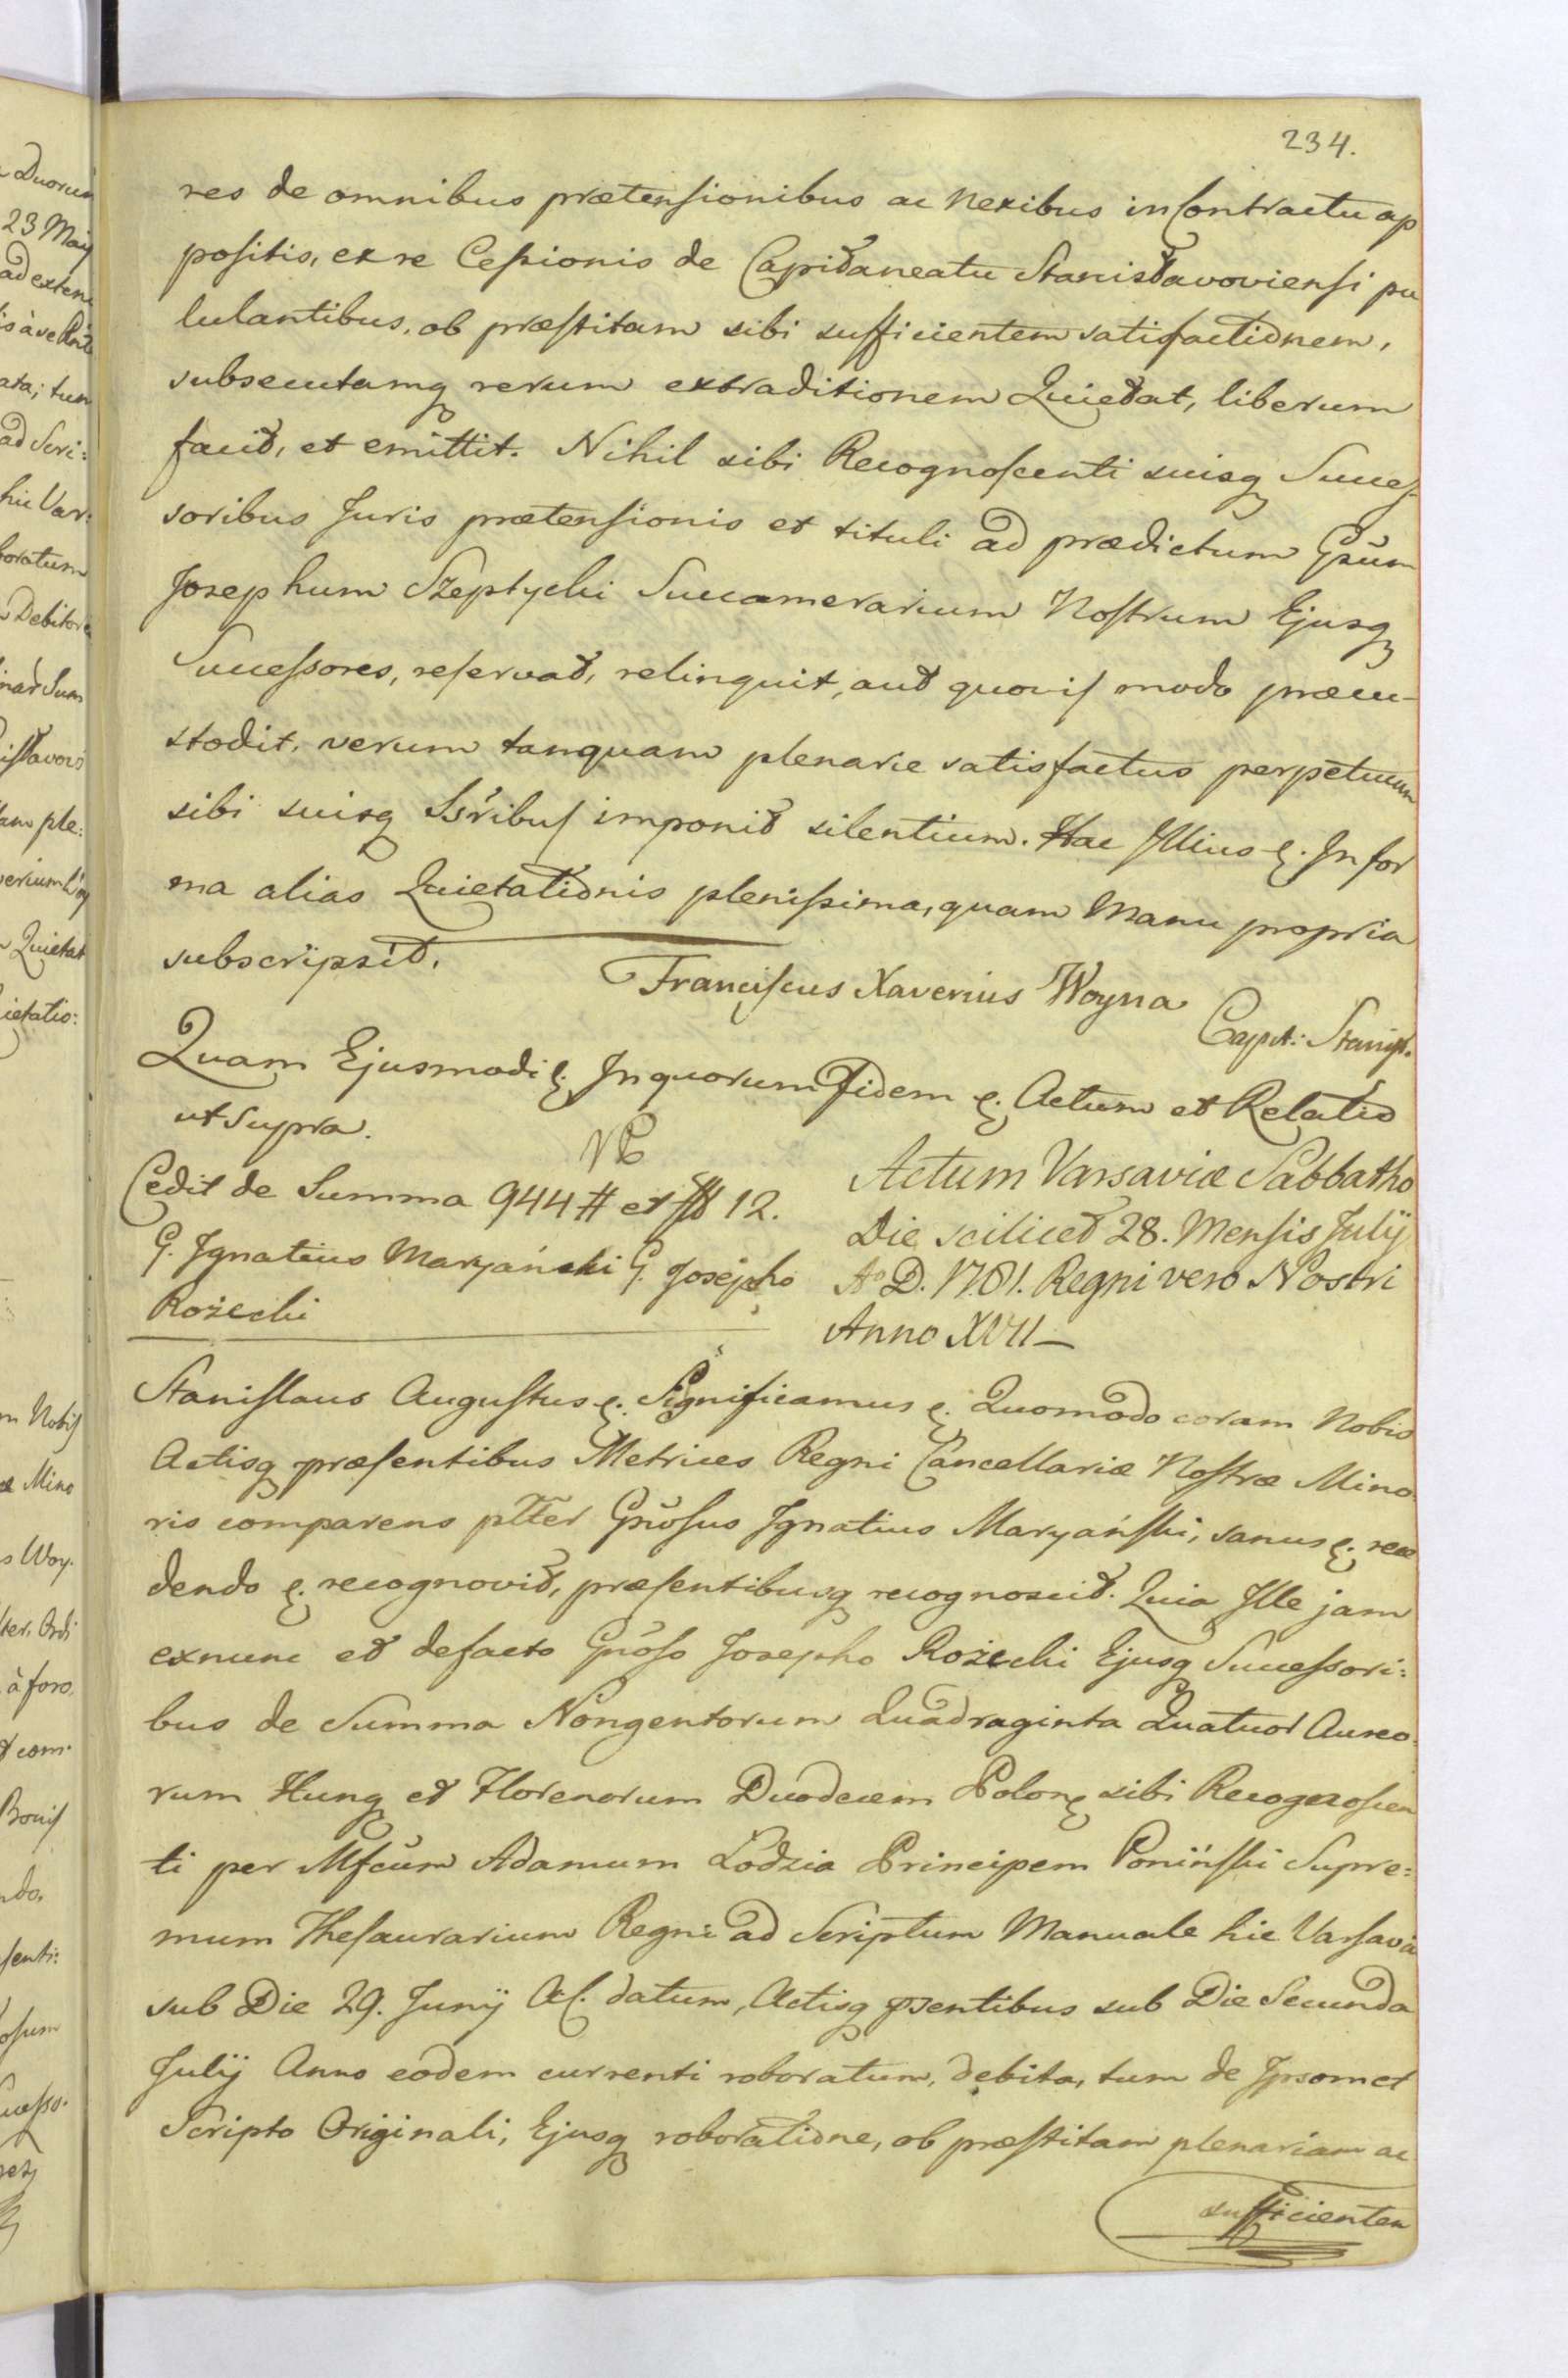 234.
res de omnibus prætensionibus ac Nexibus in Contractu ap
positis, ex re Cessionis de Capitaneatu Stanislavoviensi pu
lulantibus, ob præstitam sibi sufficientem satisfactionem,
subsecutamq rerum extraditionem Quietat, liberum
facit, et emittit. Nihil sibi Recognoscenti suisq Succes
soribus Juris prætensionis et tituli ad prædictum Gsum
Josephum Szeptycki Succamerarium Nostrum Ejusq
Successores, reservat, relinquit, aut quovis modo præcu-
stodit, verum tanquam plenarie satisfactus perpetuum
sibi suisq Ssribus imponit silentium. Hac Illius &. In for
ma alias Quietationis plenissima, quam Manu propria
subscripsit.
Franciscus Xaverius Woyna
Capit: Stanisl.
Quam Ejusmodi &. In quorum Fidem &. Actum et Relatio
ut supra.
Cedit de Summa 944 # et fl 12.
G. Ignatius Maryański G. Josepho
Rożecki
Actum Varsaviæ Sabbatho
Die scilicet 28. Mensis Julij
Ao D. 1781. Regni vero Nostri
Anno XVII_
Stanislaus Augustus &. Significamus &. Quomodo coram Nobis
Actisq præsentibus Metrices Regni Cancellariæ Nostræ Mino
ris comparens pltter Gnosus Ignatius Maryański, sanus &. rece
dendo &. recognovit, præsentibusq recognoscit. Quia Ille jam
exnunc et defacto Gnoso Josepho Rożecki Ejusq Successori:
bus de Summa Nongentorum Quadraginta Quatuor Aureo
rum Hung et Florenorum Duodecem Polon sibi Recognoscen
ti per Mfcum Adamum Łodzia Principem Poniński Supre:
mum Thesaurarium Regni ad Scriptum Manuale hic Varsaviæ
sub Die 29. Junij A C. datum, Actisq psentibus sub Die Secunda
Julij Anno eodem currenti roboratum, debita, tum de Ipsomet
Scripto Originali, Ejusq roboratione, ob præstitam plenariam ac
sufficientem